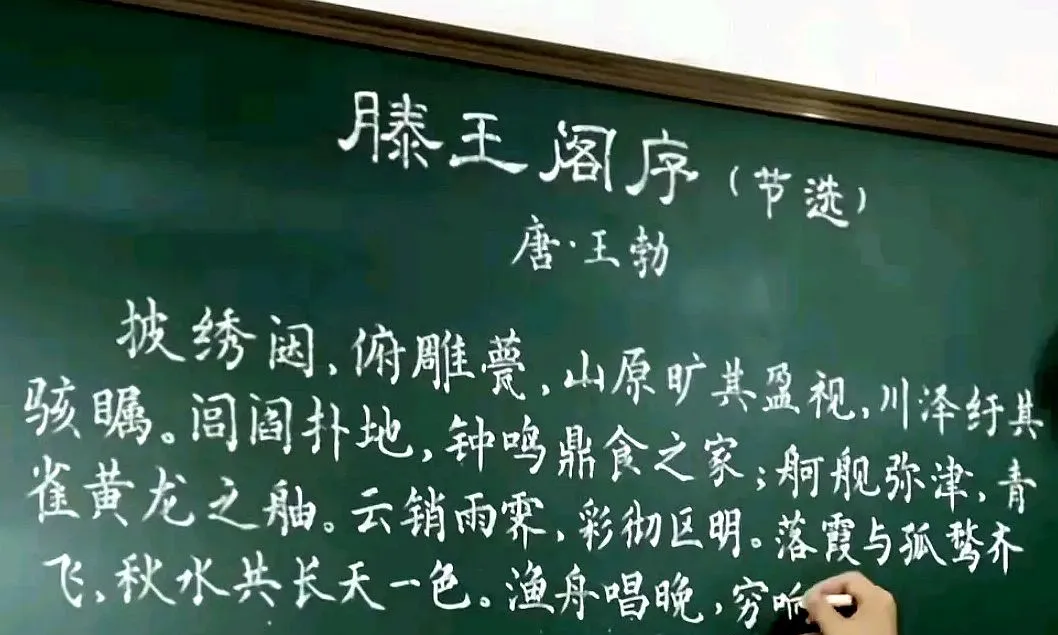 滕王阁序（节选）
唐·王勃
披绣闼，俯雕甍，山原旷其盈视，川泽纡其
骇瞩。闾阎扑地，钟鸣鼎食之家；舸舰弥津，青
雀黄龙之舳。云销雨霁，彩彻区明。落霞与孤鹜齐
飞，秋水共长天一色。渔舟唱晚，穷响